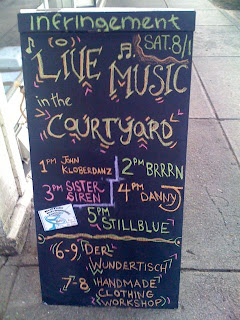 infringement
SAT. 8/1
LIVE MUSIC
in the
COURTYARD
1PM JOHN KLOBERDANZ
2PM BRRRN
3PM SISTER SIREN
4PM DANNY J
5PM STILLBLUE
6-9 DER WUNDERTISCH
7-8 (HANDMADE
CLOTHING
WORKSHOP)